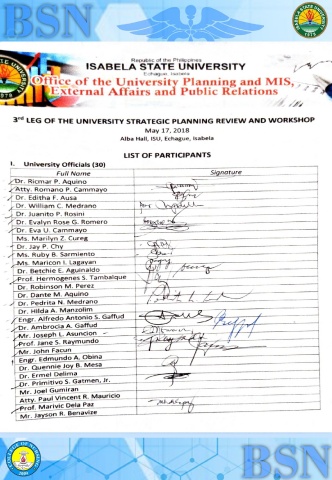 BSN
Republic of the Philippines
ISABELA STATE UNIVERSITY
Echague, Isabela
Office of the University Planning and MIS,
External Affairs and Public Relations
3rd LEG OF THE UNIVERSITY STRATEGIC PLANNING REVIEW AND WORKSHOP
May 17, 2018
Alba Hall, ISU, Echague, Isabela
LIST OF PARTICIPANTS
I. University Officials (30)
Full Name Signature
Dr. Ricmar P. Aquino
Atty. Romano P. Cammayo
Dr. Editha F. Ausa
Dr. William C. Medrano
Dr. Juanito P. Rosini
Dr. Evalyn Rose G. Romero
Dr. Eva U. Cammayo
Ms. Marilyn Z. Cureg
Dr. Jay P. Chy
Ms. Ruby B. Sarmiento
Ms. Maricon I. Lagayan
Dr. Betchie E. Aguinaldo
Prof. Hermogenes S. Tambalque
Dr. Robinson M. Perez
Dr. Dante M. Aquino
Dr. Pedrita N. Medrano
Dr. Hilda A. Manzolim
Engr. Alfredo Antonio S. Gaffud
Dr. Ambrocia A. Gaffud
Mr. Joseph L. Asuncion
Prof. Jane S. Raymundo
Mr. John Facun
Engr. Edmundo A. Obina
Dr. Quennie Joy B. Mesa
Dr. Ermel Delima
Dr. Primitivo S. Gatmen, Jr.
Mr. Joel Gumiran
Atty. Paul Vincent R. Mauricio
Prof. Marivic Dela Paz
Mr. Jayson R. Benavize
BSN